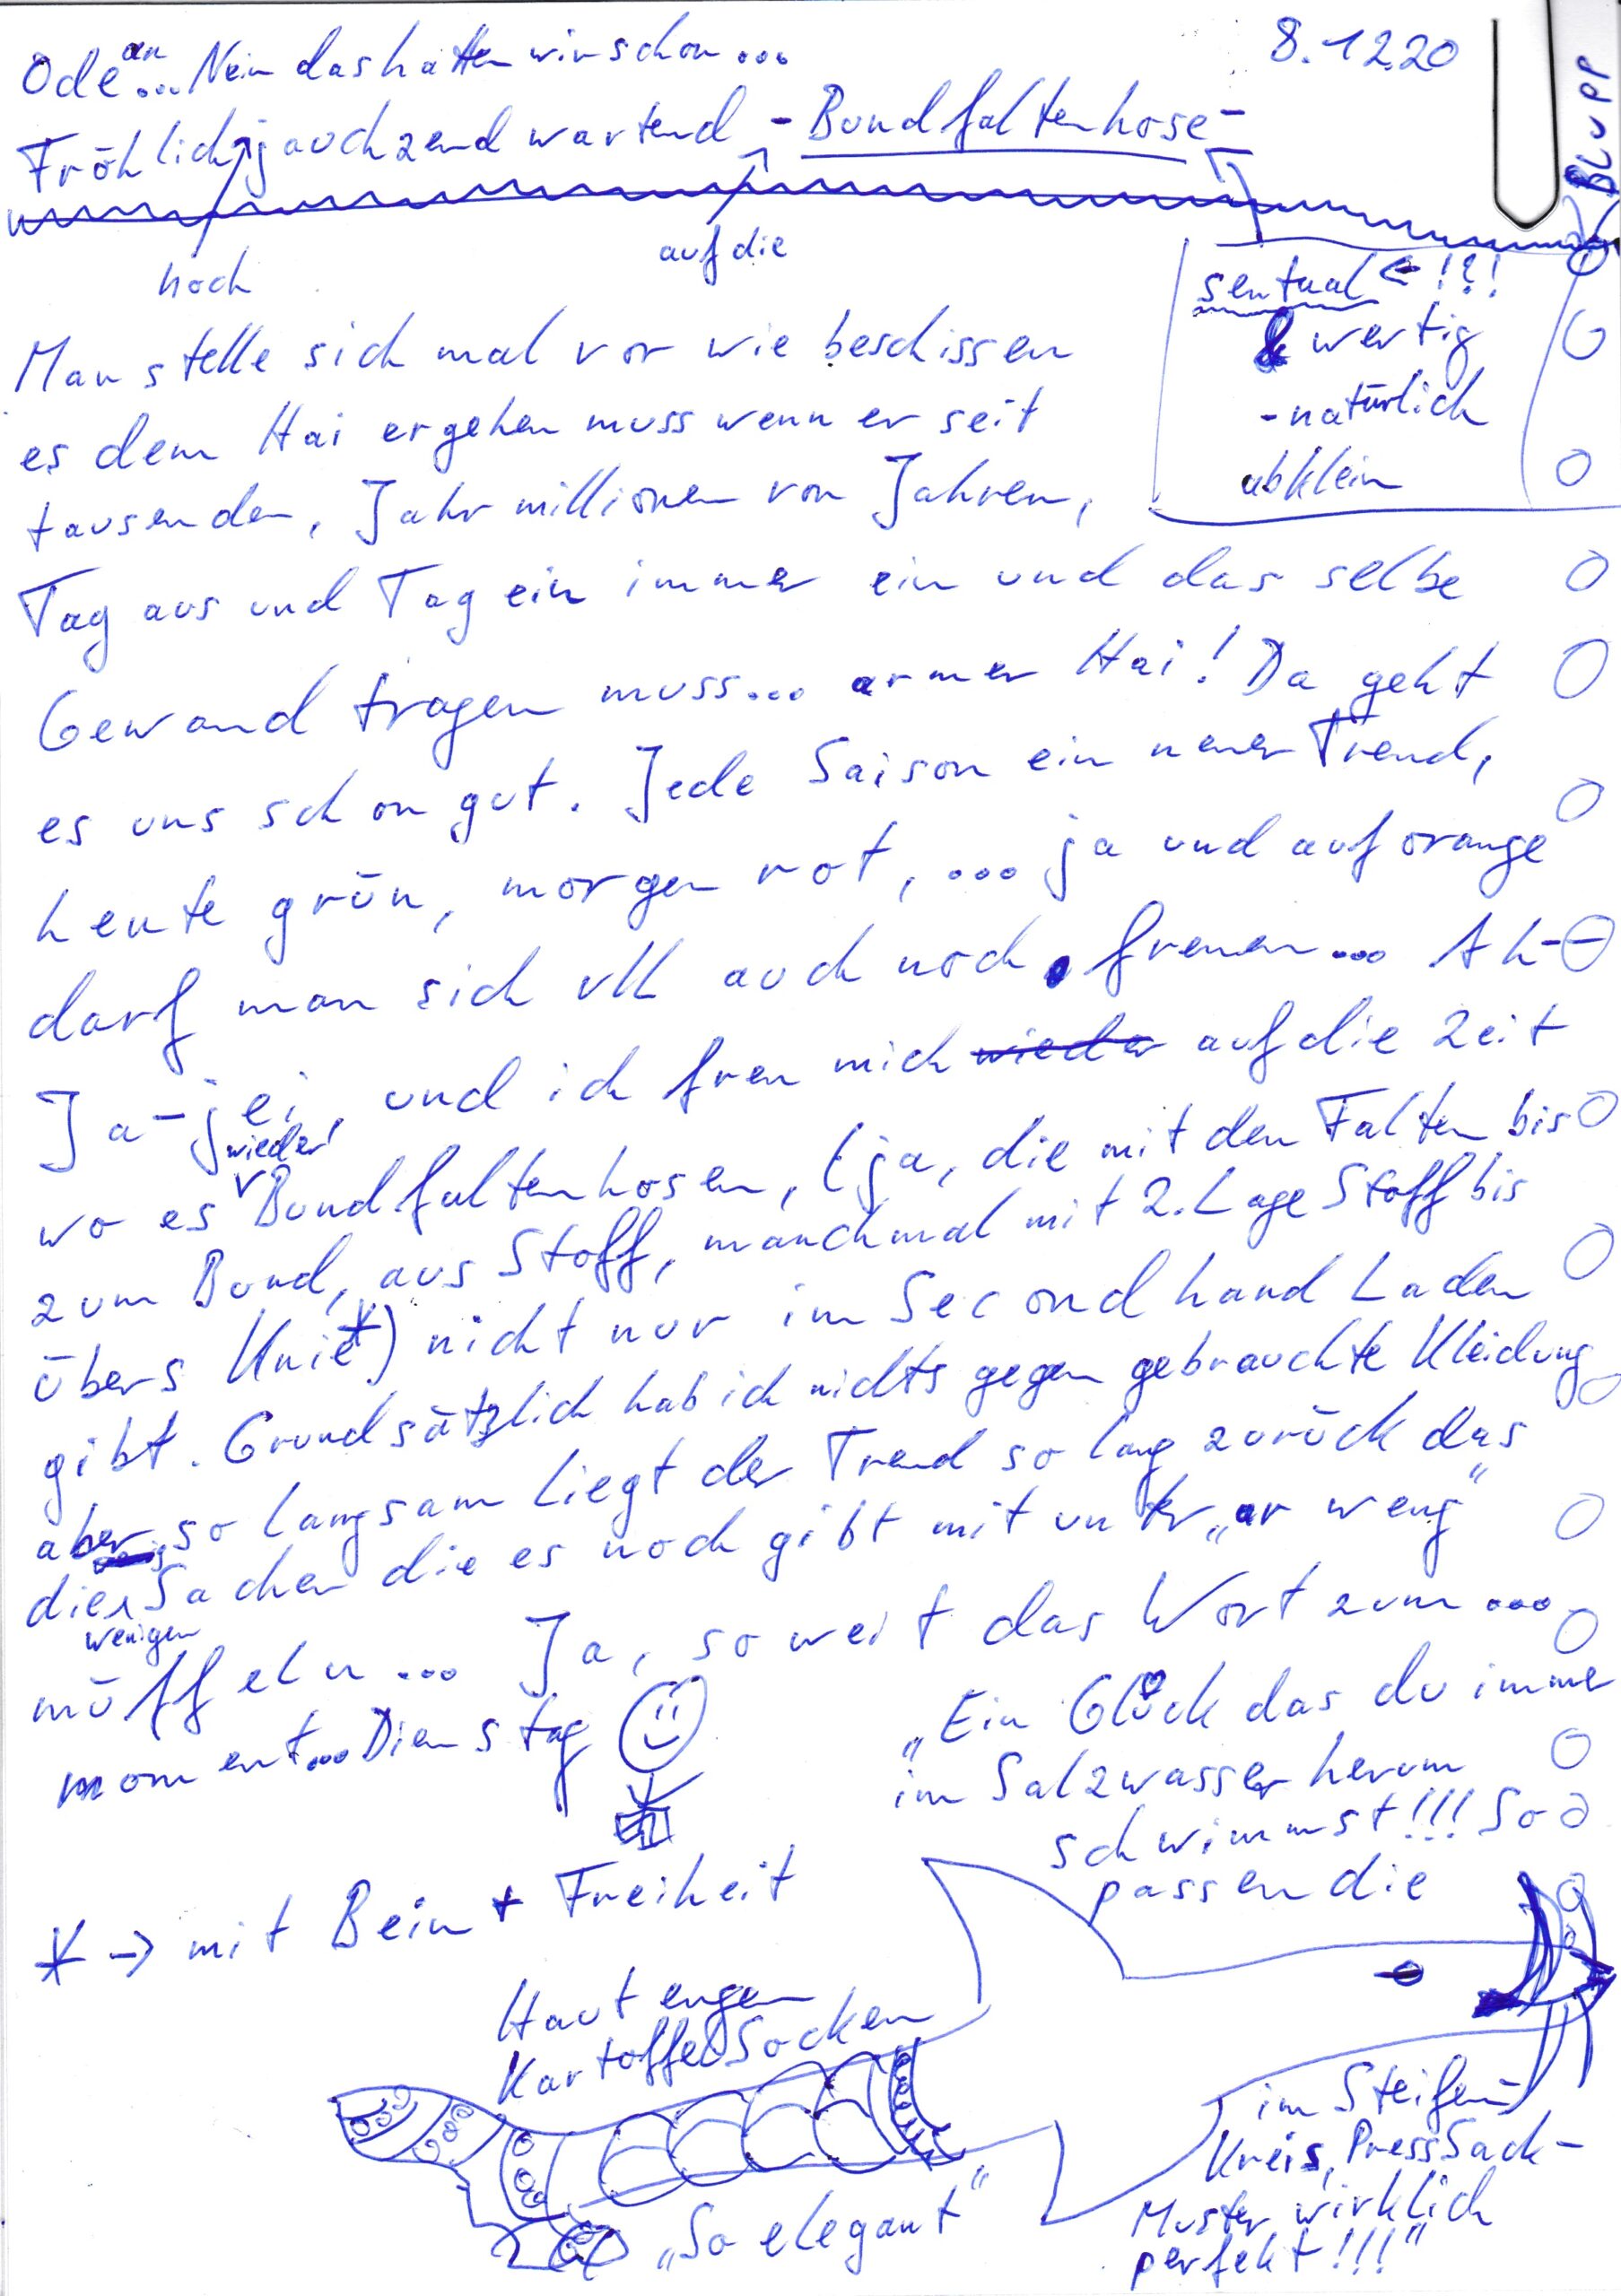 Ode an... Nein das hatten wir schon...
8.12.20
Blupp
Fröhlich jauchzend wartend - Bundfaltenhose -
noch
auf die
sentual ← !?!
& wertig
- natürlich
abklein
Man stelle sich mal vor wie beschissen
es dem Hai ergehen muss wenn er seit
tausenden, Jahrmillionen von Jahren,
Tag aus und Tag ein immer ein und das selbe
Gewand tragen muss... armer Hai! Da geht
es uns schon gut. Jede Saison ein neuer Trend,
heute grün, morgen rot, ... ja und auf orange
darf man sich vll auch noch freuen... Ah-
Ja-jei, und ich freu mich wieder auf die Zeit
wieder!
wo es Bundfaltenhosen, (ja, die mit den Falten bis
zum Bund, aus Stoff, manchmal mit 2. Lage Stoff bis
übers Knie*) nicht nur im Second hand Laden
gibt. Grundsätzlich hab ich nichts gegen gebrauchte Kleidung
aber so langsam liegt der Trend so lang zurück das
die Sachen die es noch gibt mit unter „ar weng"
wenigen
müffeln... Ja, so weit das Wort zum ...
moment... Dienstag
* → mit Bein + Freiheit
„Ein Glück das du immer
im Salzwasser herum
schwimmst!!! So
passen die
Haut engen
Kartoffel Socken
im Steifen
Kreis, PressSack-
Muster wirklich
perfekt!!!"
„So elegant"